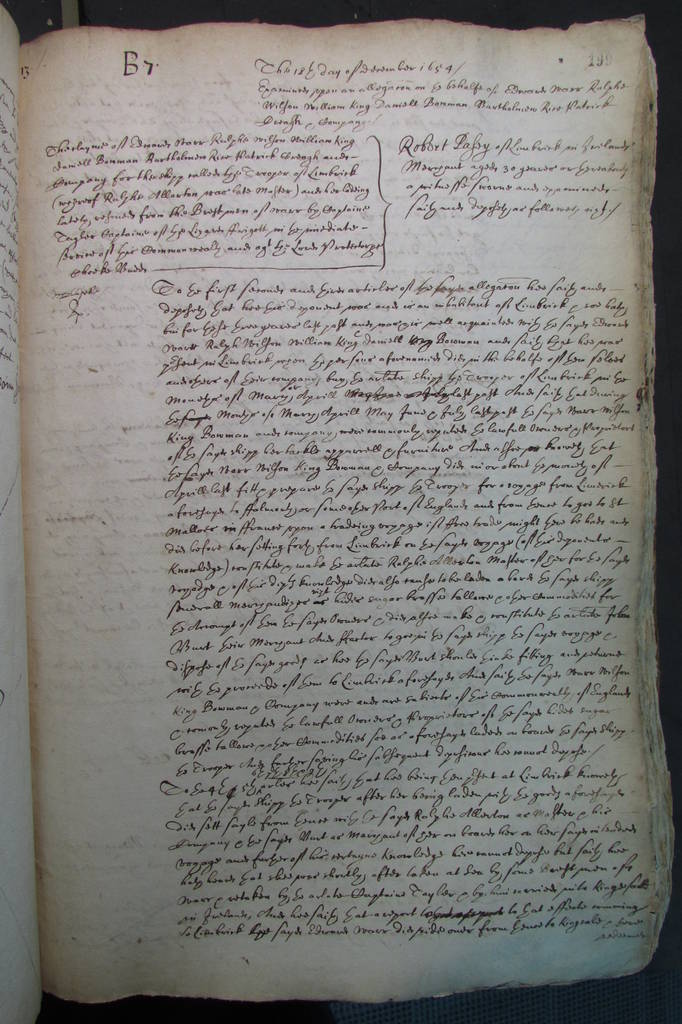 B 7.
199
The 18th day of December 1654 /
Examined upon an allegacon on the behalfe of Edward Warr Ralph
Wilson William King Daniell Bowman Bartholmew Rice Patrick
Creagh & Company /
The clayme of Edward Warr Ralph Wilson William King
Daniell Bowman Bartholmew Rice Patrick Creagh and
Company for the shipp called the Trooper of Limbrick
(whereof Ralphe Allerton was late Master) and her lading
lately redeemed from the Brest men of warr by Captaine
Tayler Captaine of the frigott in the imediate
service of this Comonwealth and agt the Lords
Robert Passy of Limbrick in Ireland
Merchant aged 30 yeares or thereabouts
a witnesse sworne and examined
saith and deposeth as followeth vizt /
To the first second and third articles of the sayd allegacon hee saith and
deposeth that hee this deponent was and is an inhabitant of Limbrick & soe hath
bin for theise three yeares last past and was & is well acquainted with the sayd Edward
Warr Ralph Wilson William King Daniell Bowman and saith that hee was
present in Limbrick when the persons aforenamed did in the behalfe of them selves
and others of their company buy the arlate shipp the Trooper of Limbrick in the
Moneth of March or Aprill last past And saith that during
the Moneths of March Aprill May June & July last past the sayd Warr Wilson
King Bowman and company were commonly reputed the lawfull Owners & Proprietors
of the sayd shipp her tackle apparrell & furniture And alsoe knoweth that
the sayd Warr Wilson King Bowman & Company did in or about the moneth of
Aprill last fitt & prepare the sayd shipp the Trooper for a voyage from Limerick
aforesayd to ffalmouth or some other Port of England and from thence to goe to St
Malloes in ffrance upon a tradeing voyage if free trade might there be had and
did before her setting forth from Limbrick on the sayd voyage (of this deponents
knowledge) constitute & make the arlate Ralph Allerton Master of her for the sayd
voyadge & of his this depts knowledge did alsoe cause to be laden aboard the sayd shipp
severall Merchandizes vizt hides sugar brasill tallowe & other Commodities for
the Accompt of them the sayd Owners & did alsoe make & constitute the arlate John
Burt their Merchant And ffactor to goe in the sayd shipp the sayd voyage &
dispose of the sayd goods as hee the sayd Burt should thinke fitting and returne
with the proceede of them to Limbrick aforesayd And saith the sayd Warr Wilson
King Bowman & Company were and are subiects of this Commonwealth of England
& comonly reputed the lawfull Owners & Proprietors of the sayd hides sugar
brasill tallowe & other Commodities soe as aforesayd laden on board the sayd shipp
the Trooper And further saving his subsequent deposition hee cannot depose /
To the 4th article hee saith that hee being then present at Limbrick knoweth
that the sayd shipp the Trooper after her being laden with the goods aforesayd
did sett sayle from thence with the sayd Ralphe Allerton as Master & his
Company & the sayd Burt as Marchant of her on board her on her sayd intended
voyage and further of his certayne knowledge hee cannot depose but saith hee
hath heard that shee was shortly after taken at sea by some Brest men of
warr & retaken by the arlate Captaine Taylor & by him carried into Kingsale
in Ireland, And hee saith that a report to that effect comming
to Limbrick the sayd Edward Warr did ride over from thence to Kingsale &